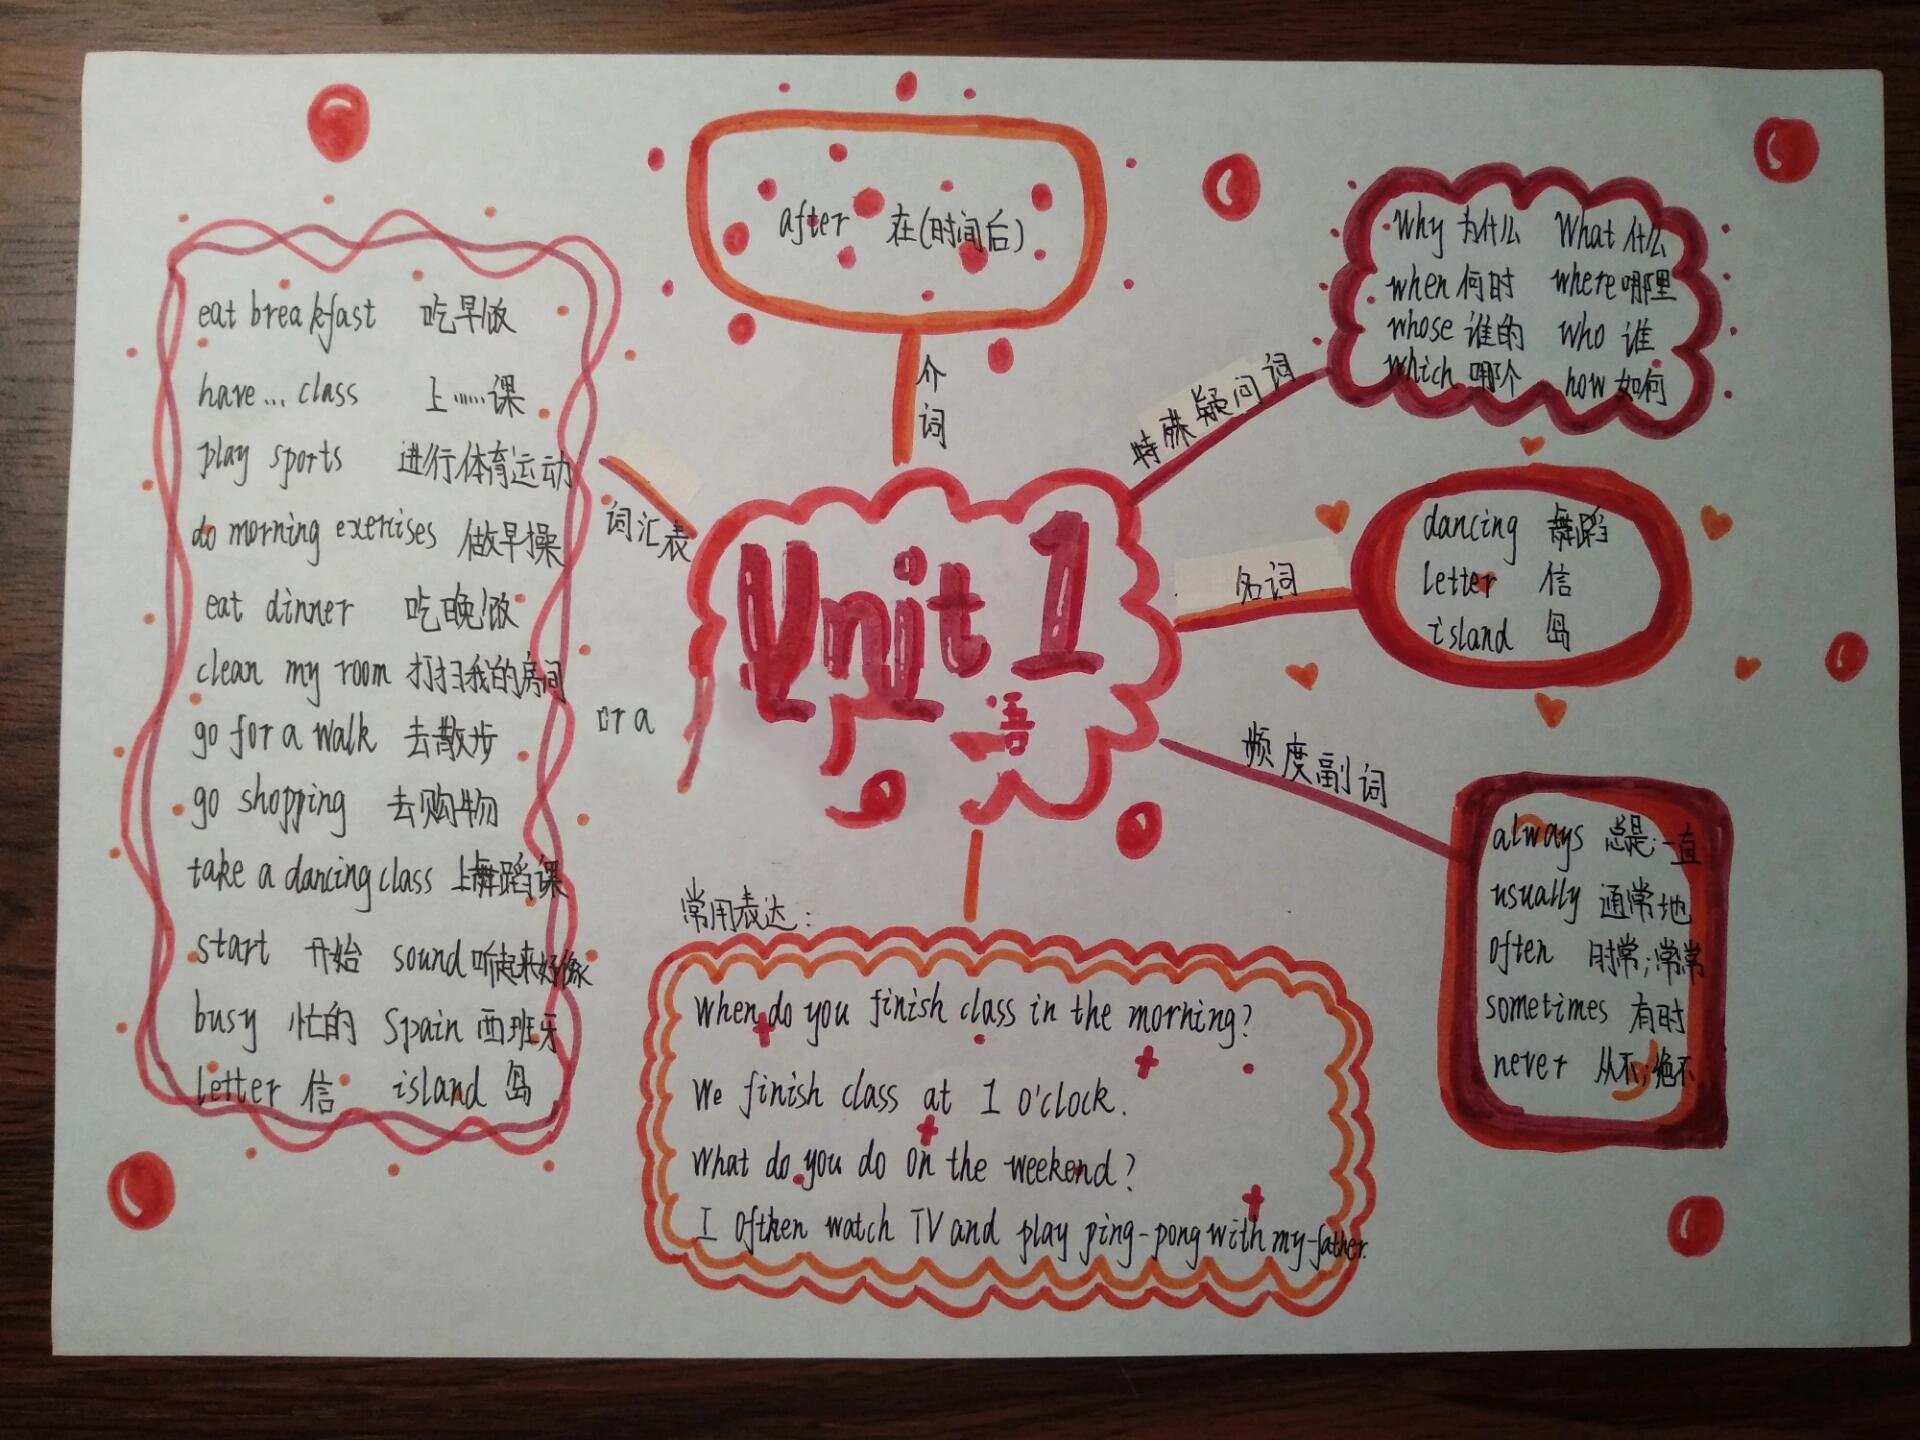 after 在(时间后)
介
词
eat breakfast 吃早饭
have... class 上……课
play sports 进行体育运动
do morning exercises 做早操
eat dinner 吃晚饭
clean my room 打扫我的房间
go for a walk 去散步
go shopping 去购物
take a dancing class 上舞蹈课
start 开始 sound 听起来好像
busy 忙的 Spain 西班牙
letter 信 island 岛
词汇表
Unit 1
语
特殊疑问词
Why 为什么 What 什么
when 何时 where 哪里
whose 谁的 who 谁
which 哪个 how 如何
名词
dancing 舞蹈
letter 信
island 岛
频度副词
always 总是;一直
usually 通常地
often 时常;常常
sometimes 有时
never 从不;绝不
常用表达:
When do you finish class in the morning?
We finish class at 1 o'clock.
What do you do on the weekend?
I ofthen watch TV and play ping-pong with my father.